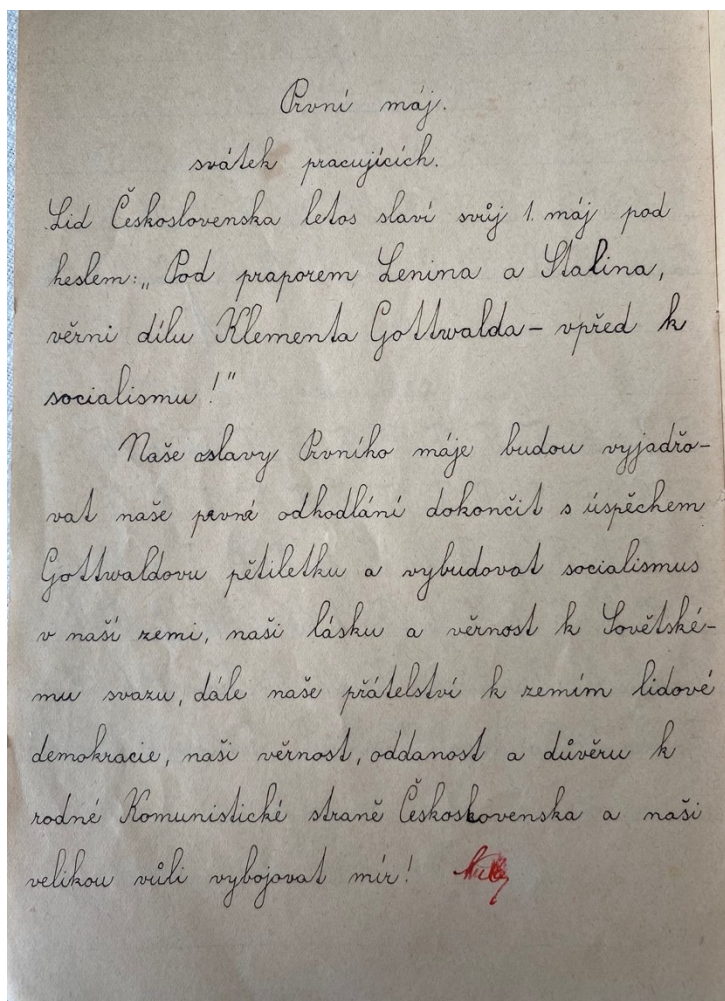 První máj.
svátek pracujících.
Lid Československa letos slaví svůj 1. máj pod
heslem: „Pod praporem Lenina a Stalina,
věrni dílu Klementa Gottwalda – vpřed k
socialismu!"
Naše oslavy Prvního máje budou vyjadřo-
vat naše pevné odhodlání dokončit s úspěchem
Gottwaldovu pětiletku a vybudovat socialismus
v naší zemi, naši lásku a věrnost k Sovětské-
mu svazu, dále naše přátelství k zemím lidové
demokracie, naši věrnost, oddanost a důvěru k
rodné Komunistické straně Československa a naši
velikou vůli vybojovat mír!